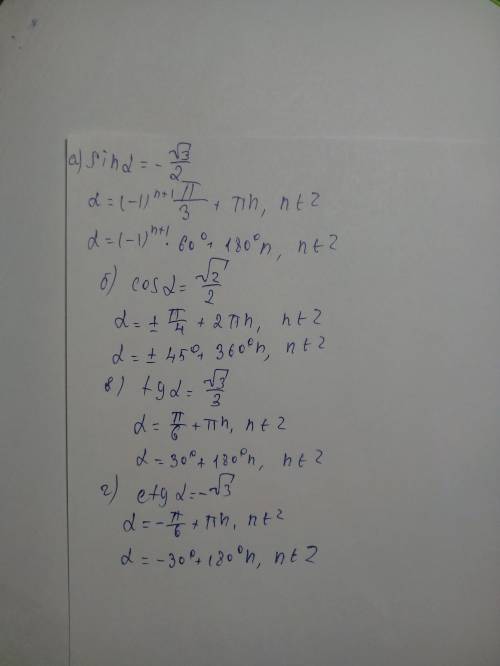 а) sin α = -√3/2
α = (-1)^(n+1) π/3 + πn, n ∈ Z
α = (-1)^(n+1) · 60° + 180°n, n ∈ Z
б) cos α = √2/2
α = ± π/4 + 2πn, n ∈ Z
α = ± 45° + 360°n, n ∈ Z
в) tg α = √3/3
α = π/6 + πn, n ∈ Z
α = 30° + 180°n, n ∈ Z
г) ctg α = -√3
α = -π/6 + πn, n ∈ Z
α = -30° + 180°n, n ∈ Z